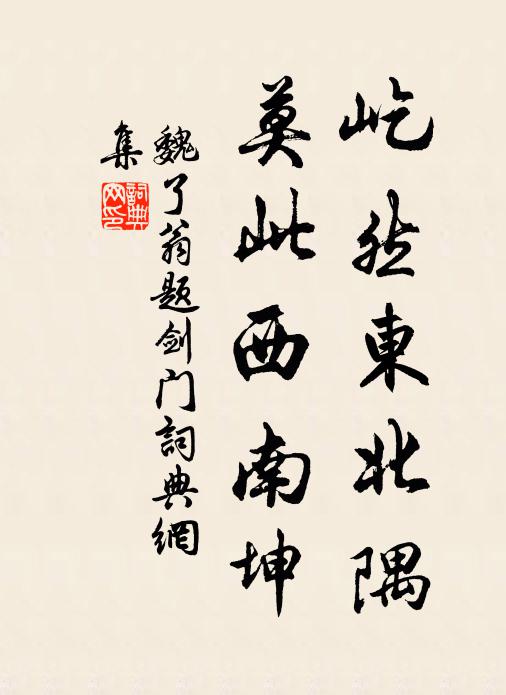 屹然東北隅
莫此西南坤
魏了翁题剑门詞典網
集
詞典网印